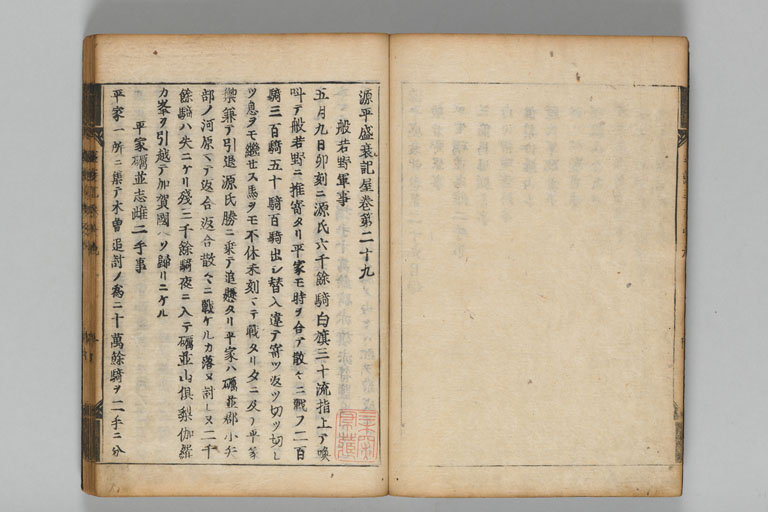 源平盛衰記屋巻第二十九
般若野軍事
五月九日卯刻ニ源氏六千餘騎白旗三十流指上テ喚
叫テ般若野ニ推寄タリ平家モ時ヲ合テ散々ニ戰フ二百
騎三百騎五十騎百騎出シ替入違テ寄ツ返ツ切ツ切レ
ツ息ヲモ繼セス馬ヲモ不休未刻マテ戰タリタニ及テ平家
禦兼テ引退源氏勝ニ乘テ追懸タリ平家ハ礪並郡小矢
部ノ河原マテ返合返合散々ニ戰ケルカ落ヌ討レヌ二千
餘騎ハ失ニケリ殘三千餘騎夜ニ入テ礪並山倶梨伽羅
カ峯ヲ引越テ加賀國ヘソ歸リニケル
平家礪並志雌二手事
平家一所ニ集テ木曽追討ノ為二十萬餘騎ヲ二手ニ分